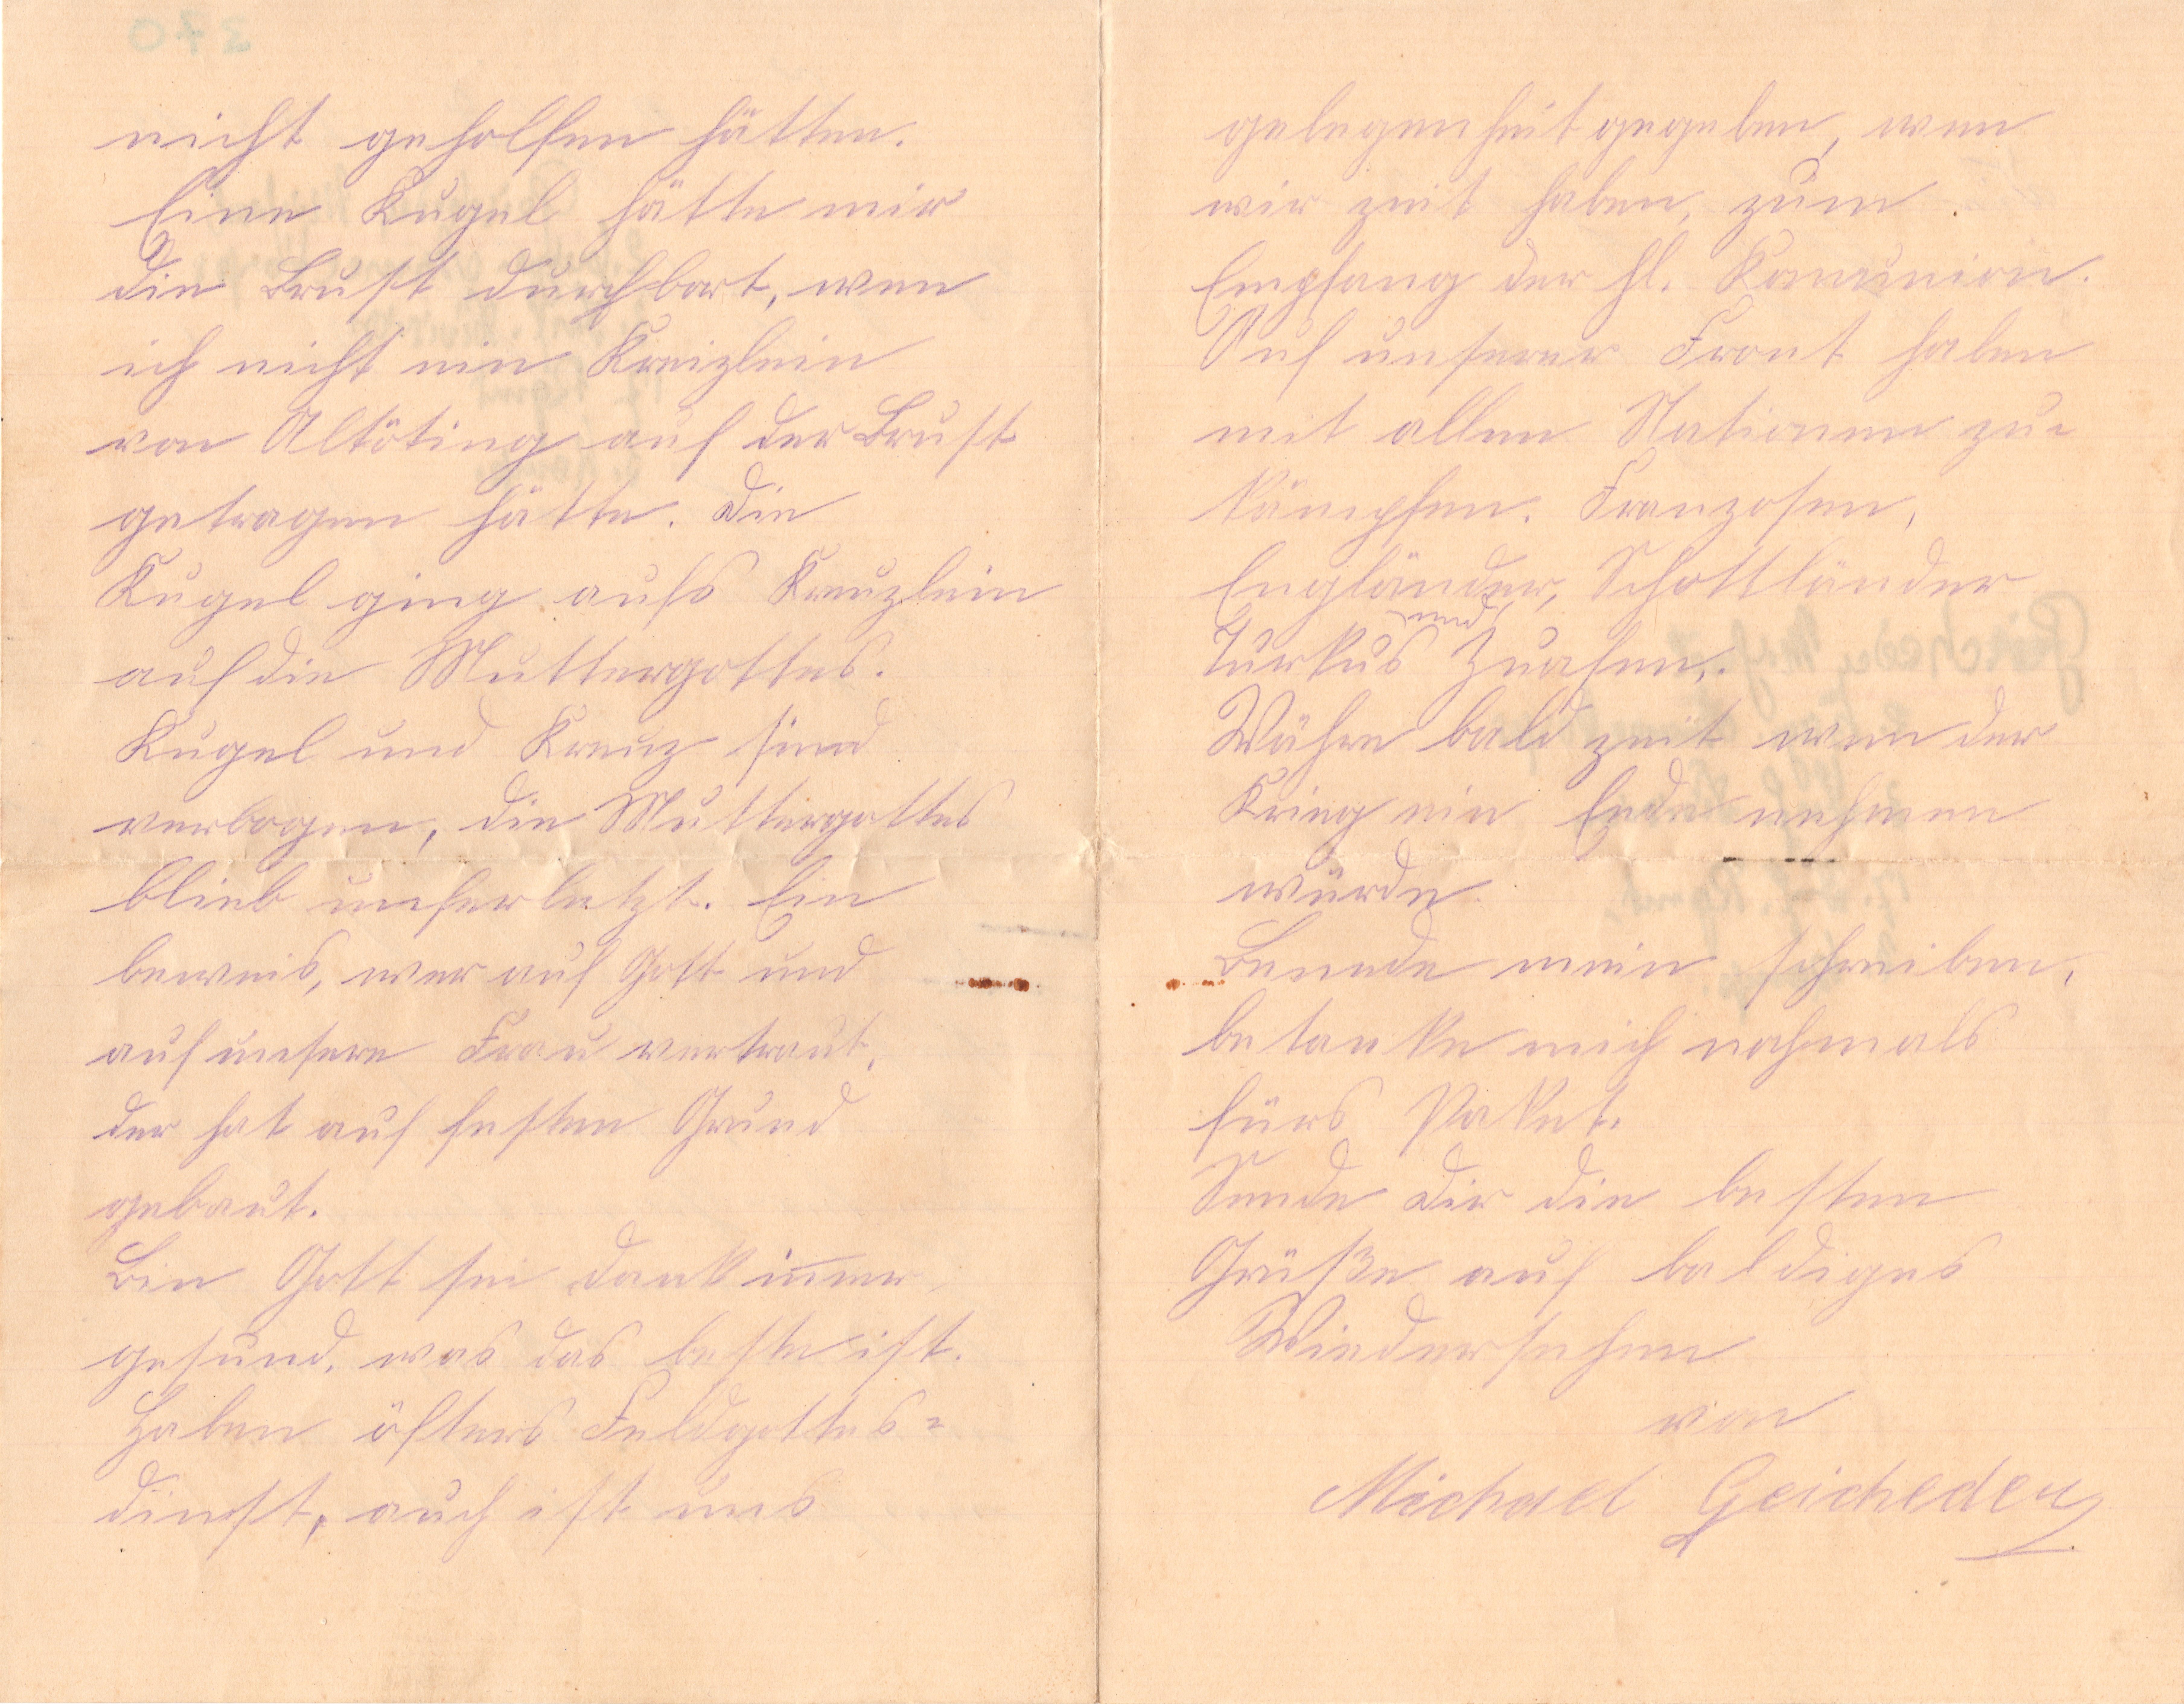 nicht geholfen hätten.
Eine Kugel hätte mir
die Brust durchbort, wen
ich nicht ein Kreizlein
von Altöting auf der Brust
getragen hätte. Die
Kugel ging aufs Kreuzlein
auf die Muttergottes.
Kugel und Kreuz sind
verbogen, die Muttergottes
blieb unferletzt. Ein
beweis, wer auf Gott und
auf unsere Frau vertraut,
der hat auf festen Grund
gebaut.
Bin Gott sei dank immer
gesund, was das beste ist.
Haben öfters Feldgottes=
dinst, auch ist uns
gelegenheit gegeben, wen
wir zeit haben, zum
Empfang der hl. Komunion.
Auf unserer Front haben
mit allen Nationen zu=
kämpfen. Franzosen,
Engländer, Schottländer
Turkos und Zuafen.
Währe bald zeit wen der
Krieg ein Ende nehmen
würde.
Beende mein schreiben,
betanke mich nochmals
fürs Paket.
Sende Dir die besten
Grüße auf baldiges
Wiedersehen
von
Michael Geicheder